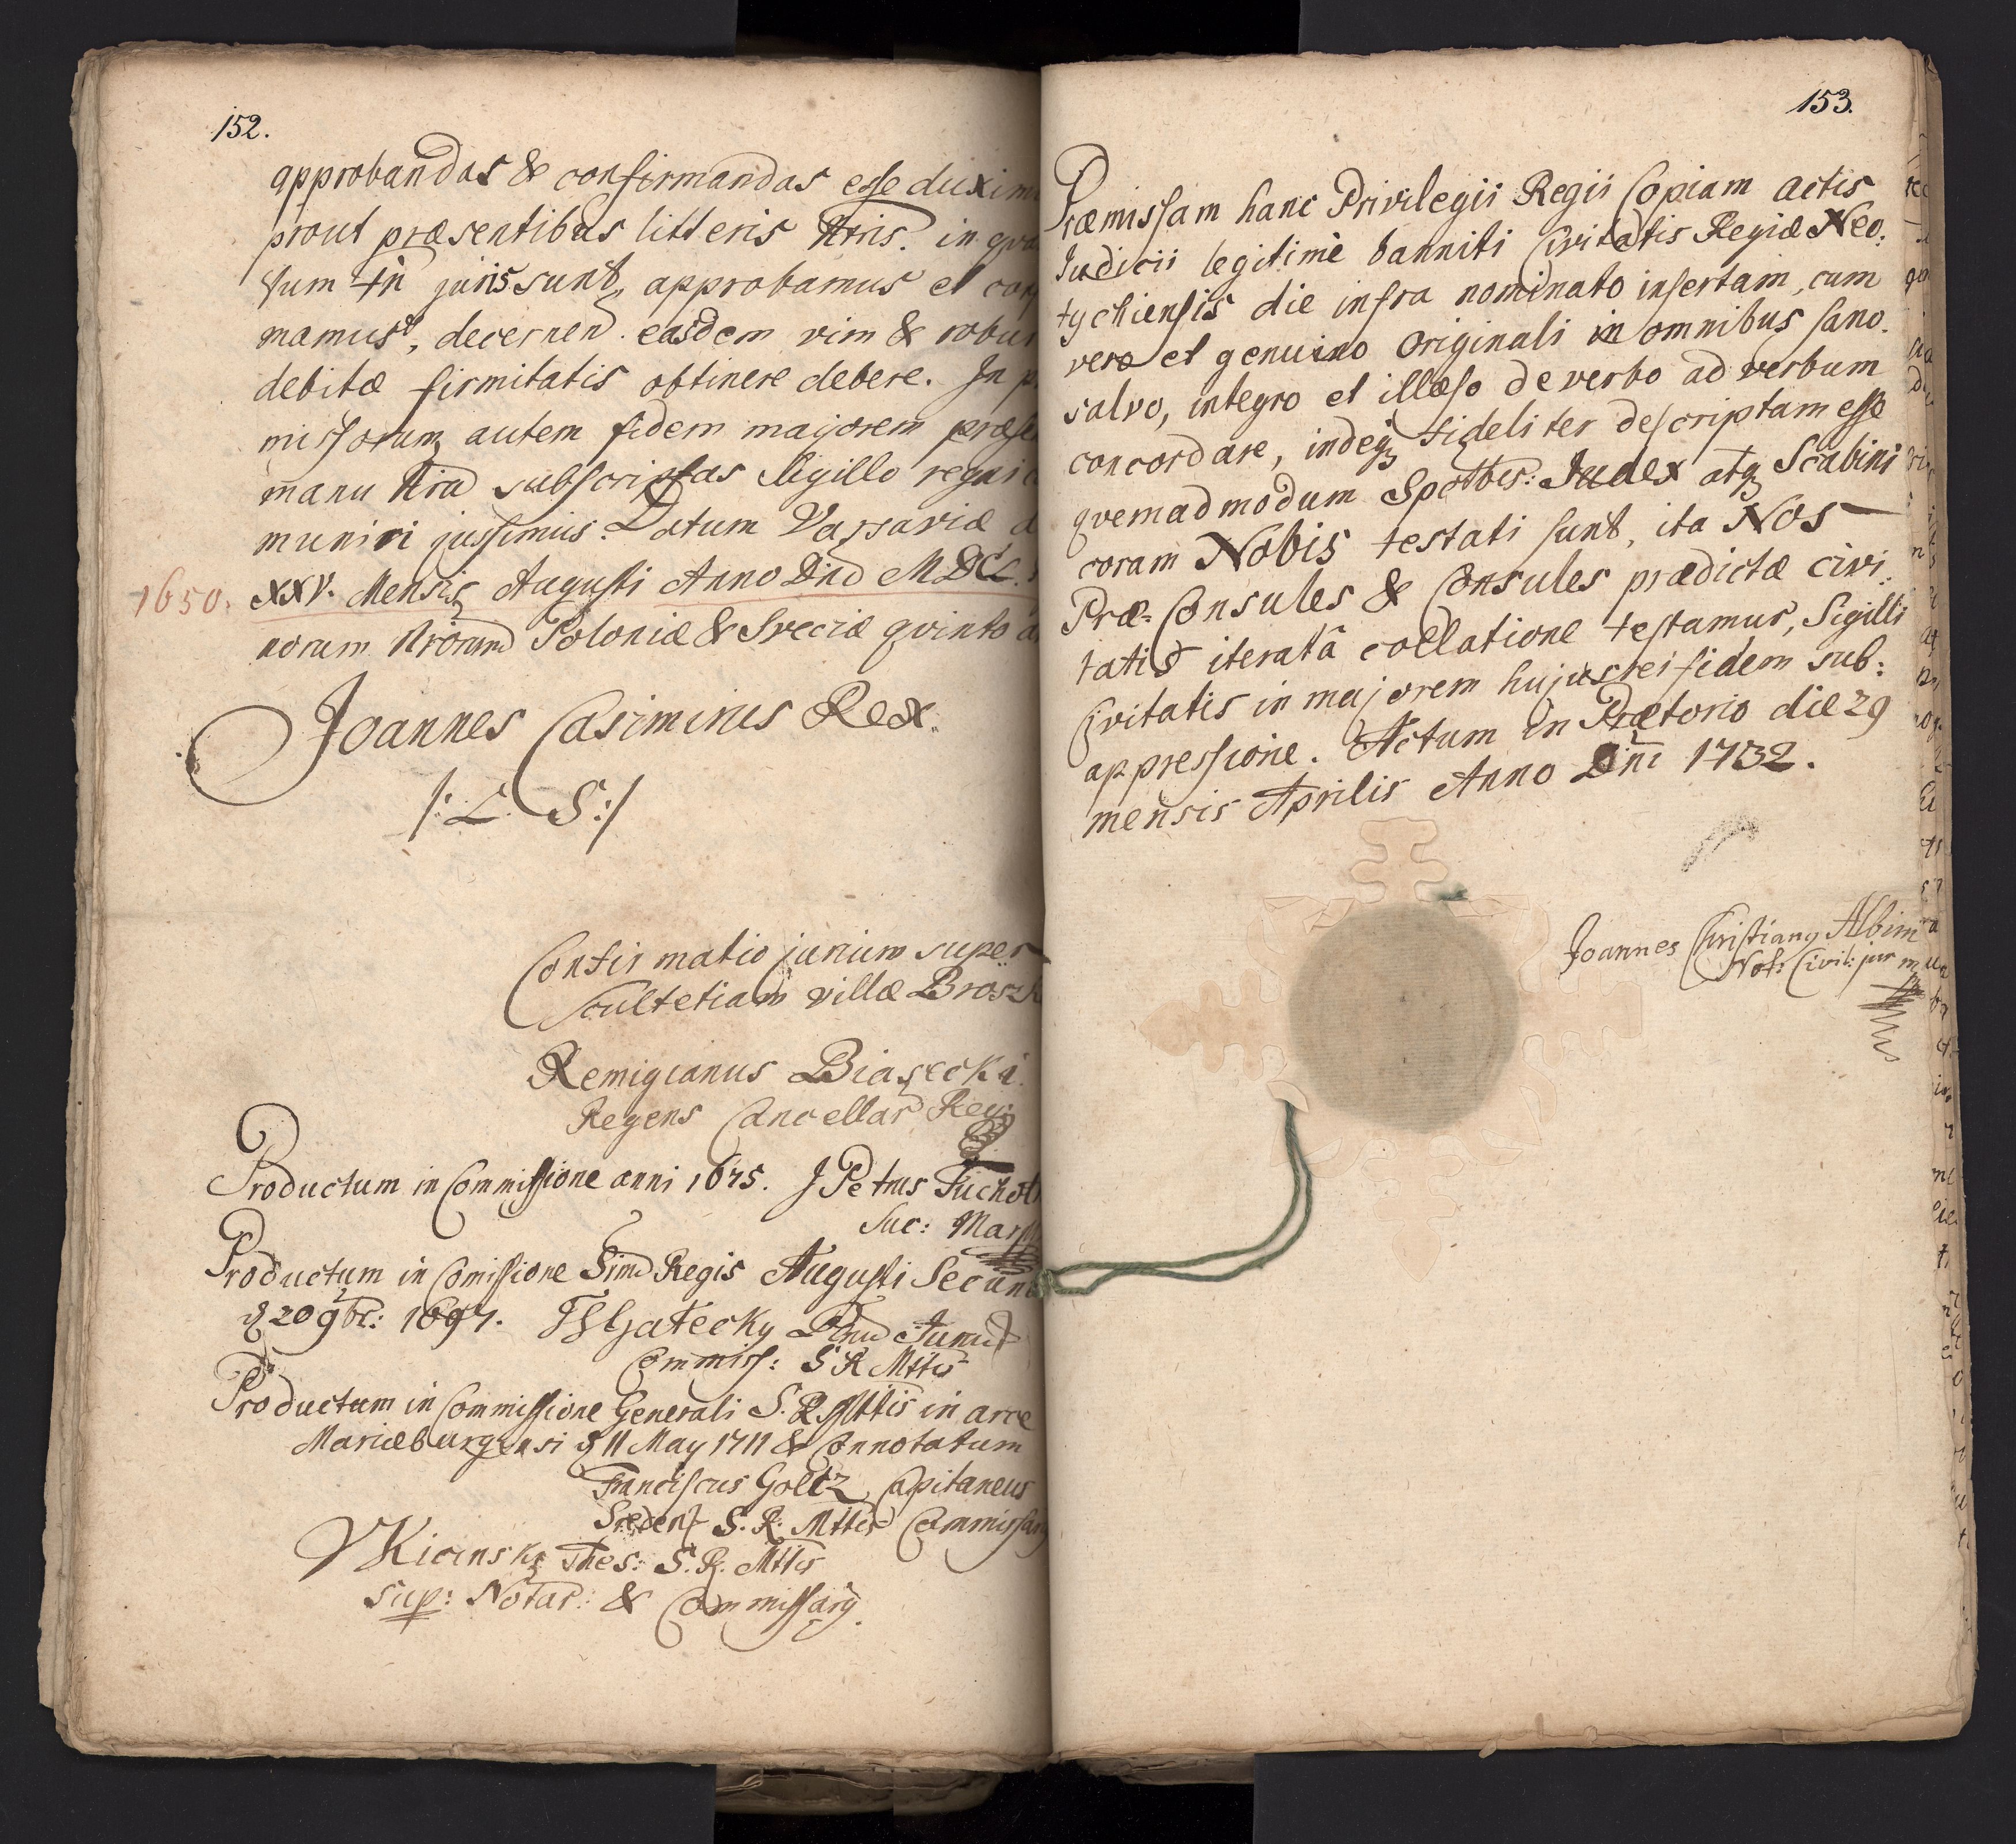 152.
approbandas & confirmandas esse duxim
prout præsentibus litteris Nris. in qva
tum in juris sunt, approbamus et con
mamus, decernen. easdem vim & robur
debitæ firmitatis obtinere debere. In p
missorum autem fidem majorem præsen
manu Nra subscriptas Sigillo regni
muniri jussimus. Datum Varsaviæ d
1650. XXV. Mensis Augusti Anno Dni MDCL.
norum Nrorum Poloniæ & Sveciæ qvinto
Joannes Casimirus Rex.
/: L. S :/
Confirmatio jurium super
Scultetiam villæ Brosz
Remigianus Biasecki
Regens Cancellar Reg:
Productum in Commissione anni 1675. J Petrus Tuchol
Suc: Mar
Productum in Comissione Simi Regis Augusti Secun
d 20 9br: 1697.
Commiss: S R Mttis
Productum in Commissione Generali S. R. Mttis in arce
Mariæburgensi d 11 May 1711 & Connotatum
Franciscus Goltz Capitaneus
S. R. Mttis Commissar
Kicinsky Thes: S. R. Mttis
Sup: Notar: & Commissarg.
153.
Præmissam hanc Privilegii Regii Copiam actis
Judicii legitime banniti Civitatis Regiæ Neo:
tychiensis die infra nominato insertam, cum
vero et genuino Originali in omnibus sano.
salvo, integro et illæso de verbo ad verbum
concordare, indeq fideliter descriptam esse
qvemadmodum Spectbis: Judex atq Scabini
coram Nobis testati sunt, ita Nos
Præ-Consules & Consules prædictæ civi:
tatis iteratâ collatione testamur, Sigilli
Civitatis in majorem hujus rei fidem sub:
appressione. Actum in Prætorio die 29
mensis Aprilis Anno Dni 1732.
Joannes Christiang Albini
Not: Civit: jur